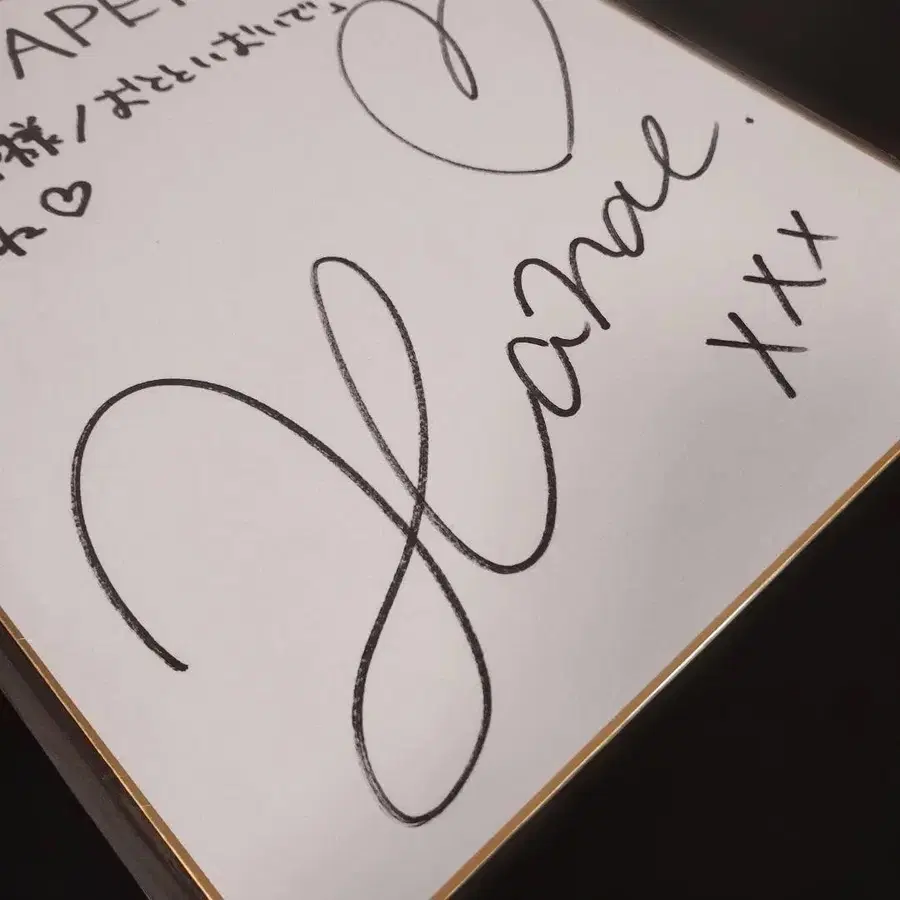 APE
様/おとといおいで
ね♡
Hanae.
xxx